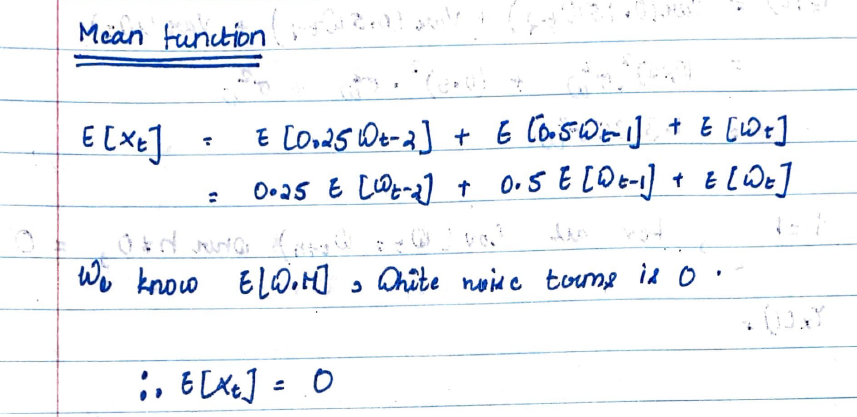 Mean function
E[Xt] = E[0.25Wt-2] + E[0.5Wt-1] + E[Wt]
= 0.25 E[Wt-2] + 0.5 E[Wt-1] + E[Wt]
We know E[W.N], White noise terms is 0.
∴ E[Xt] = 0